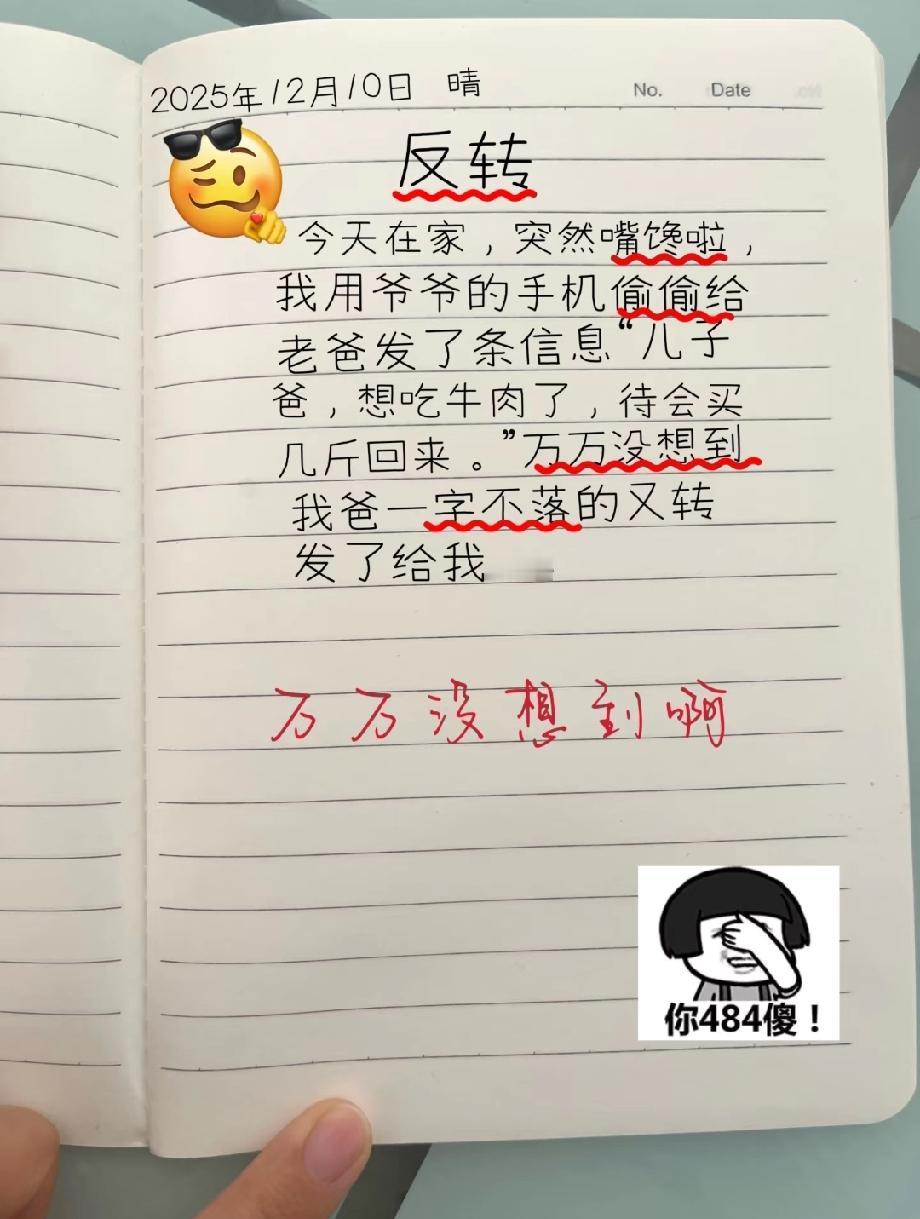 2025年12月10日 晴
No. Date
反转
今天在家，突然嘴馋啦，
我用爷爷的手机偷偷给
老爸发了条信息“儿子
爸，想吃牛肉了，待会买
几斤回来。”万万没想到
我爸一字不落的又转
发了给我
万万没想到啊
你484傻！